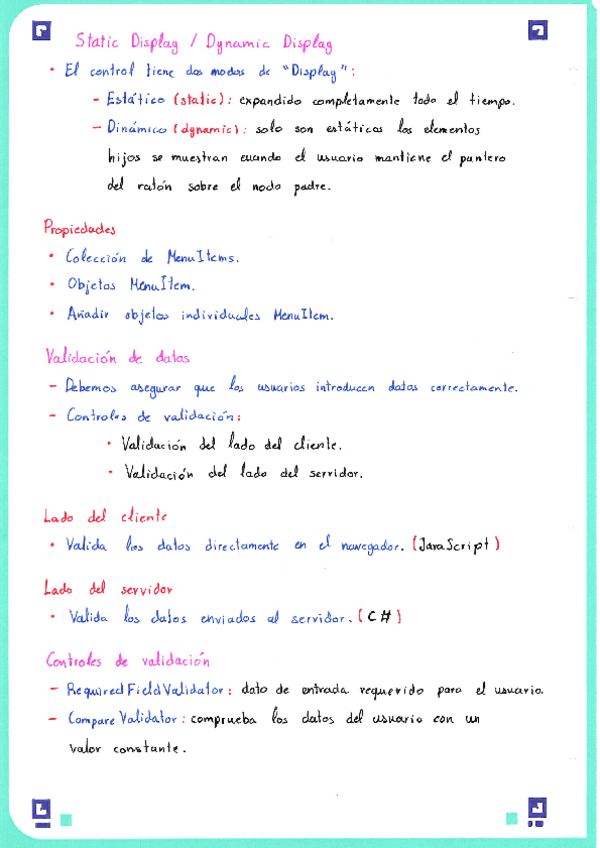 Static Display / Dynamic Display
• El control tiene dos modos de "Display":
- Estático (static): expandido completamente todo el tiempo.
- Dinámico (dynamic): solo son estáticos los elementos
hijos se muestran cuando el usuario mantiene el puntero
del ratón sobre el nodo padre.
Propiedades
• Colección de MenuItems.
• Objetos MenuItem.
• Añadir objetos individuales MenuItem.
Validación de datos
- Debemos asegurar que los usuarios introducen datos correctamente.
- Controles de validación:
• Validación del lado del cliente.
• Validación del lado del servidor.
Lado del cliente
• Valida los datos directamente en el navegador. (JavaScript)
Lado del servidor
• Valida los datos enviados al servidor. (C#)
Controles de validación
- RequiredFieldValidator: dato de entrada requerido para el usuario.
- CompareValidator: comprueba los datos del usuario con un
valor constante.